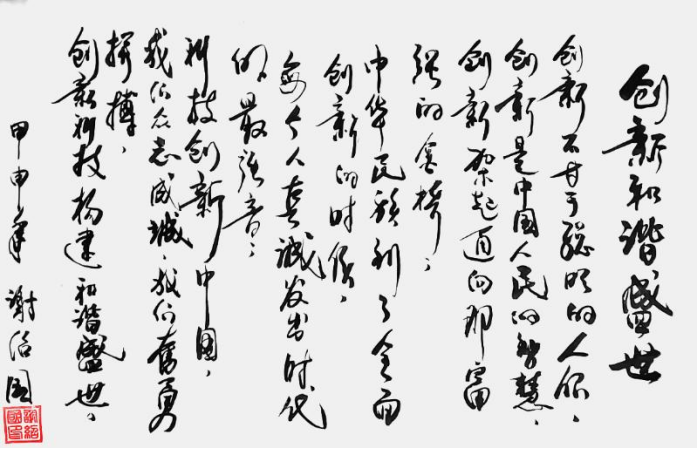 创新和谐盛世
创新不甘于聪明的人
创新是中国人民的智慧、
创新架起通向那富
强的金桥、
中华民族到了全面
创新的时候、
每个人真诚发出时代
的、最强音、
科技创新中国、
我们众志成城、我们奋勇
拼搏、
创新科技构建和谐盛世、
甲申年 谢绍国